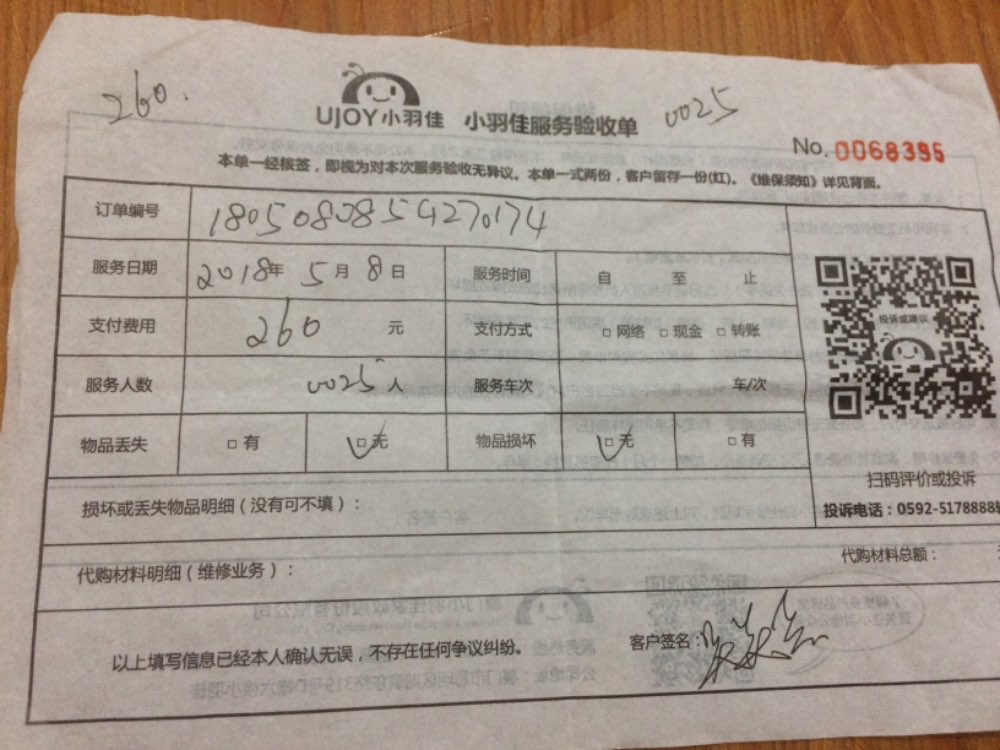 260.
0025
UJOY小羽佳 小羽佳服务验收单
No. 0068395
本单一经核签，即视为对本次服务验收无异议。本单一式两份，客户留存一份(红)。《维保须知》详见背面。
订单编号 1805080854270174
服务日期 2018年 5月 8日 服务时间 自 至 止
支付费用 260 元 支付方式 □网络 □现金 □转账
服务人数 0025 人 服务车次 车/次
物品丢失 □有 □无 物品损坏 □无 □有
投诉或建议
扫码评价或投诉
投诉电话：0592-5178888
损坏或丢失物品明细（没有可不填）：
代购材料明细（维修业务）： 代购材料总额：
以上填写信息已经本人确认无误，不存在任何争议纠纷。 客户签名：